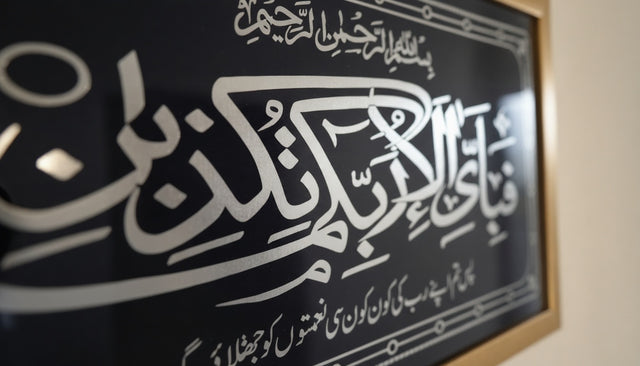 بسم الله الرحمن الرحيم
فَبِأَيِّ آلَاءِ رَبِّكُمَا تُكَذِّبَانِ
پس تم اپنے رب کی کون کون سی نعمتوں کو جھٹلاؤ گے